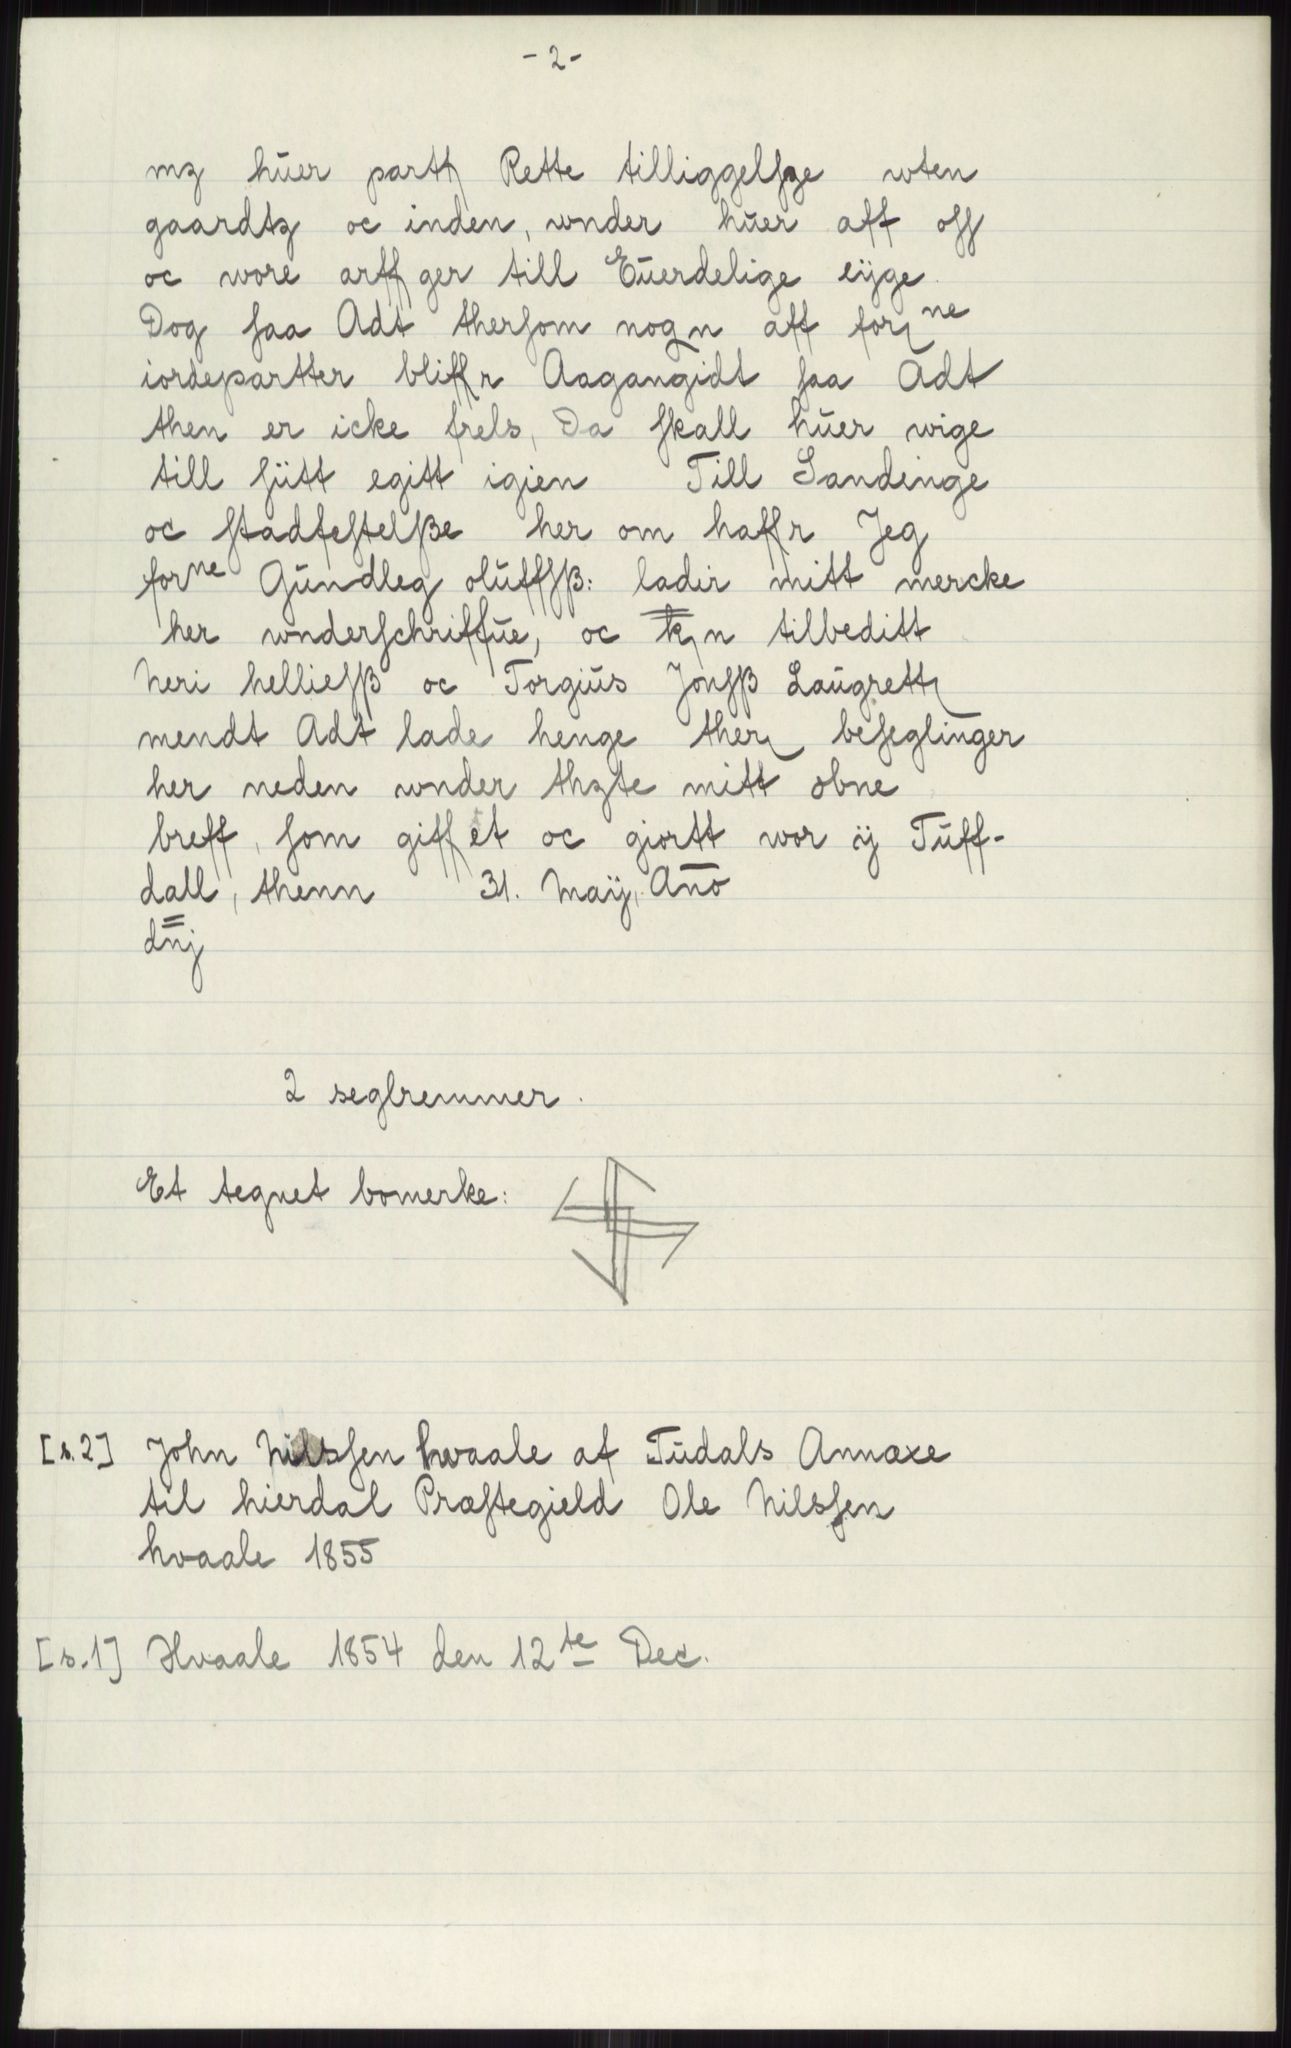 - 2 -
mz huer partt Rette tilliggelsze wten
gaardtz oc inden, wnder huer aff oss
oc wore arffger till Euerdelige eÿge
Dog saa Adt thersom nogn aff forne
iordepartter bliffr Aagangidt saa Adt
then er icke frels, Da skall huer wige
till sitt egitt igien Till Sandinge
oc stadfestelße her om haffr Jeg
forne Gundleg oluffsß: ladir mitt mercke
her wnderschriffue, oc tilbeditt
Neri helliesß oc Torgius Jonsß Laugrett
mendt Adt lade henge ther beseglinger
her neden wnder thzte mitt obne
breff, som giffet oc giortt wor ÿ Tuff-
dall, thenn 31. Maÿ, Año
dnj
2 seglremmer.
Et tegnet bomerke:
[s.2] John Nilssen hvaale af Tudals Annexe
til hierdal Præstegield Ole Nilssen
hvaale 1855
[s.1] Hvaale 1854 den 12te Dec.